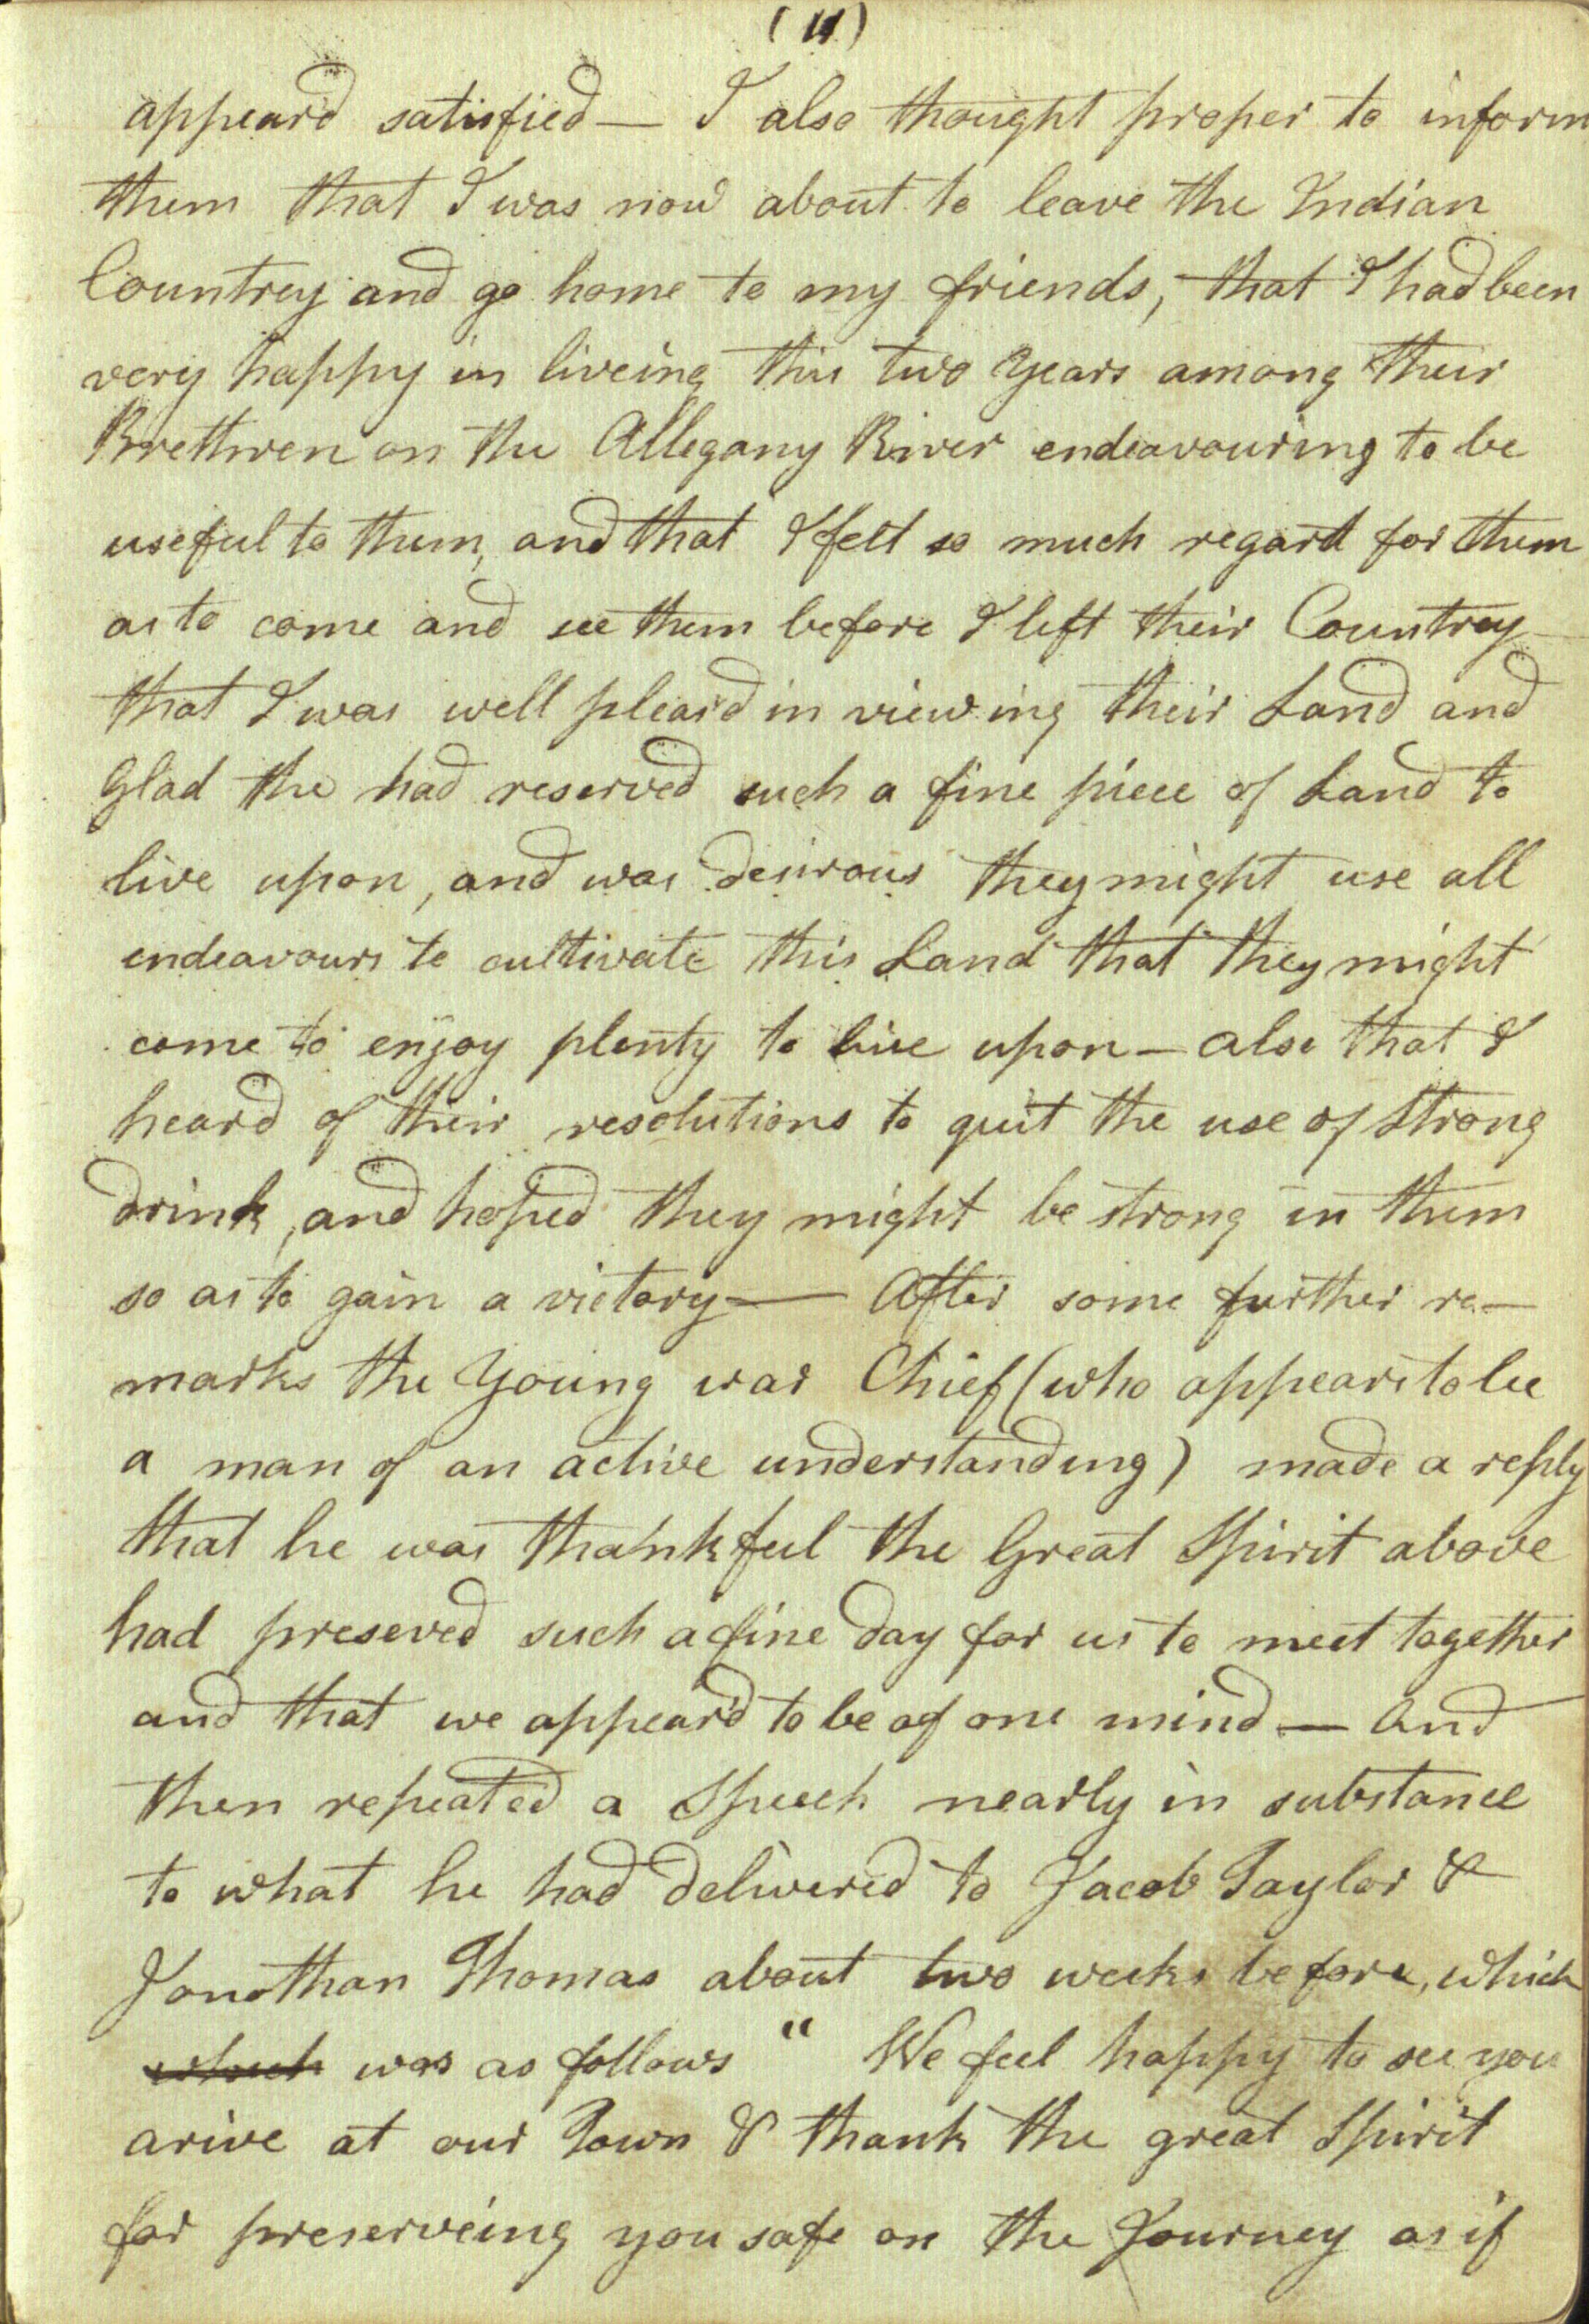 (11)
appeard satisfied — I also thought proper to inform
them that I was now about to leave the Indian
Countrey and go home to my friends, that I had been
very happy in liveing this two years among their
Brethren on the Allegany River endeavouring to be
useful to them, and that I felt so much regard for them
as to come and see them before I left their Countrey —
that I was well pleas'd in viewing their Land and
Glad the had reserved such a fine piece of Land to
live upon, and was desirous they might use all
endeavours to cultivate this Land that they might
come to enjoy plenty to live upon — also that I
heard of their resolutions to quit the use of Strong
drink, and hoped they might be strong in them
so as to gain a victory — After some further re-
marks the Young war Chief (who appears to be
a man of an active understanding) made a reply
that he was thankful the Great Spirit above
had preseved such a fine day for us to meet together
and that we appear'd to be of one mind — And
then repeated a Speech nearly in substance
to what he had delivered to Jacob Taylor &
Jonathan Thomas about two weeks before, which
which was as follows " We feel happy to see you
arive at our Town & thank the great Spirit
for preserveing you safe on the Journey as if